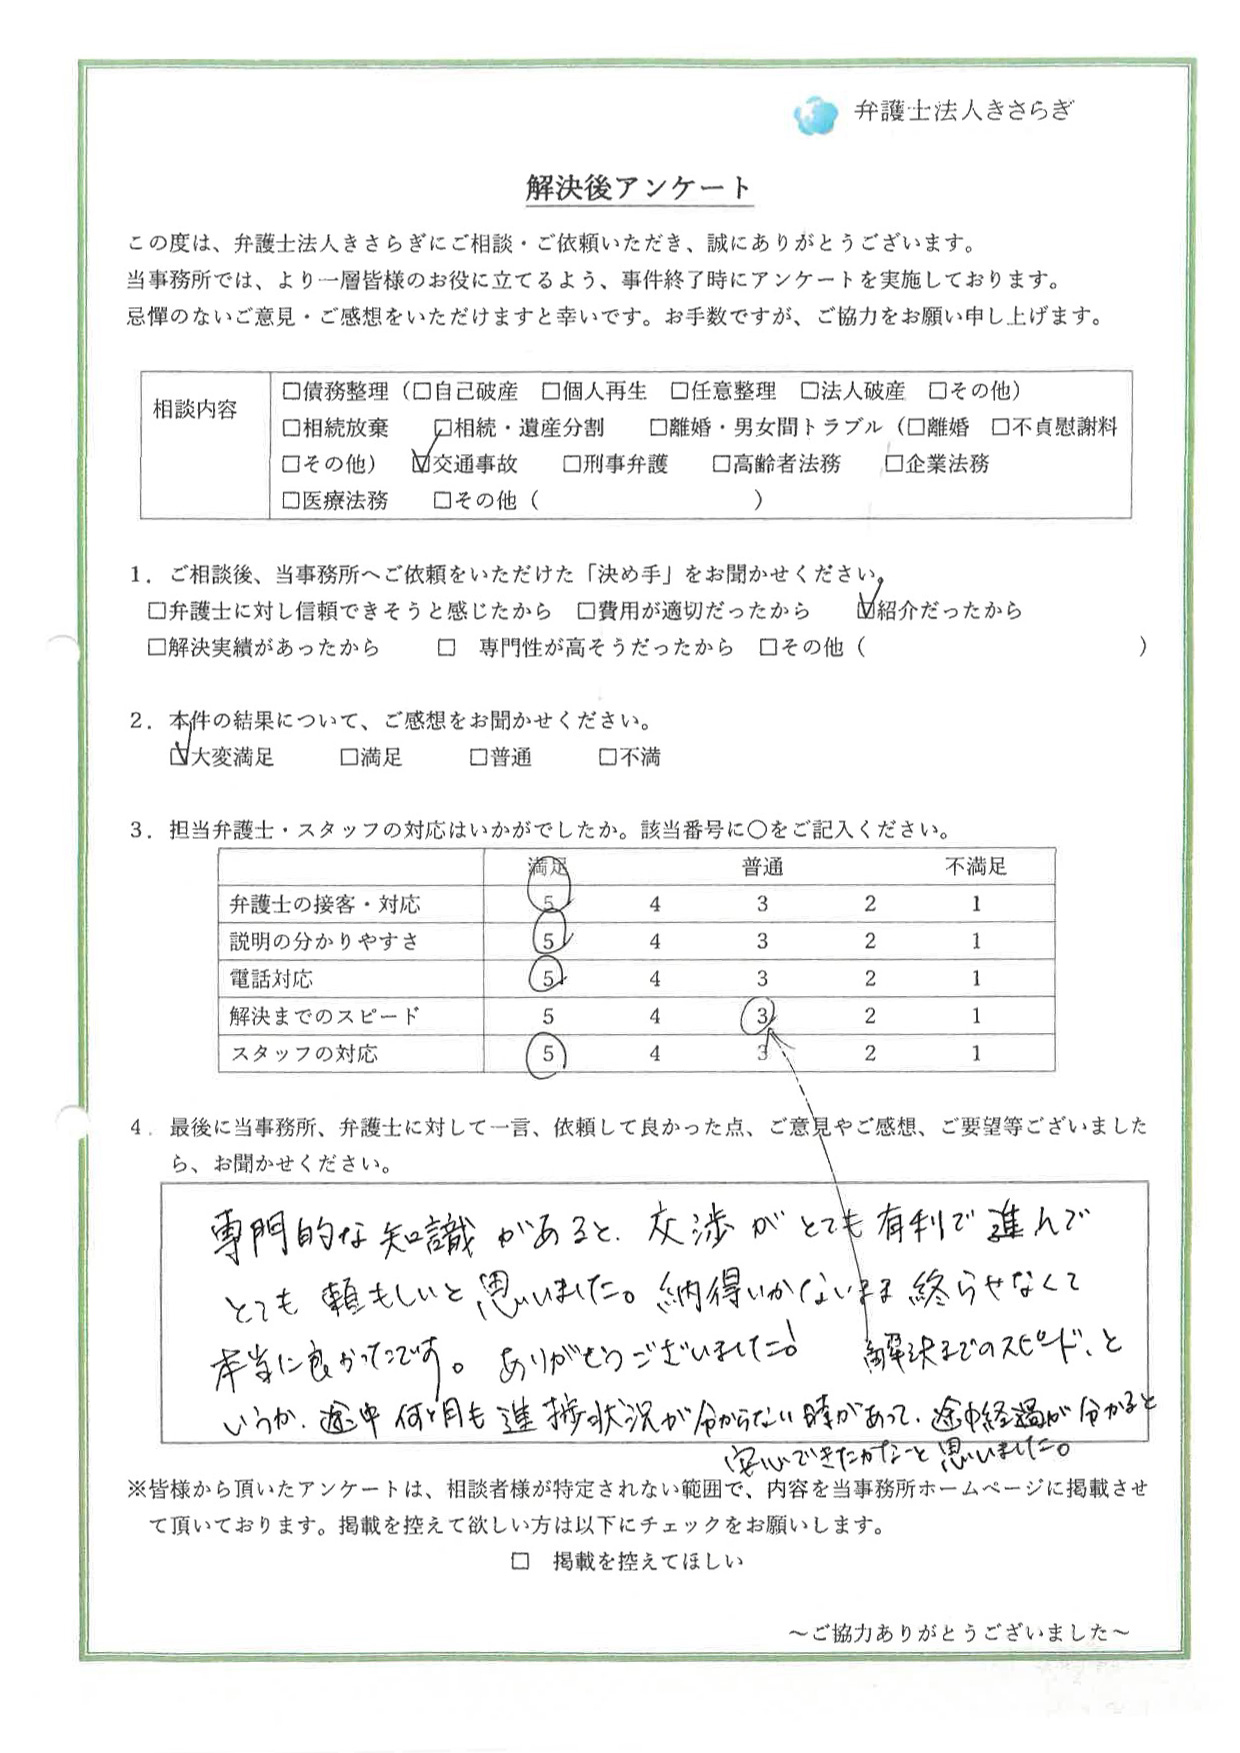 弁護士法人きさらぎ
解決後アンケート
この度は、弁護士法人きさらぎにご相談・ご依頼いただき、誠にありがとうございます。
当事務所では、より一層皆様のお役に立てるよう、事件終了時にアンケートを実施しております。
忌憚のないご意見・ご感想をいただけますと幸いです。お手数ですが、ご協力をお願い申し上げます。
相談内容
□債務整理（□自己破産 □個人再生 □任意整理 □法人破産 □その他）
□相続放棄 □相続・遺産分割 □離婚・男女間トラブル（□離婚 □不貞慰謝料
□その他） ☑交通事故 □刑事弁護 □高齢者法務 □企業法務
□医療法務 □その他（ ）
1．ご相談後、当事務所へご依頼をいただけた「決め手」をお聞かせください。
□弁護士に対し信頼できそうと感じたから □費用が適切だったから ☑紹介だったから
□解決実績があったから □ 専門性が高そうだったから □その他（ ）
2．本件の結果について、ご感想をお聞かせください。
☑大変満足 □満足 □普通 □不満
3．担当弁護士・スタッフの対応はいかがでしたか。該当番号に○をご記入ください。
満足 普通 不満足
弁護士の接客・対応 5 4 3 2 1
説明の分かりやすさ 5 4 3 2 1
電話対応 5 4 3 2 1
解決までのスピード 5 4 3 2 1
スタッフの対応 5 4 3 2 1
4．最後に当事務所、弁護士に対して一言、依頼して良かった点、ご意見やご感想、ご要望等ございました
ら、お聞かせください。
専門的な知識があると、交渉がとても有利で進んで
とても頼もしいと思いました。納得いかないまま終らせなくて
本当に良かったです。ありがとうございました！ 解決までのスピード、と
いうか、途中何ヶ月も進捗状況が分からない時があって、途中経過が分かると
安心できたかなーと思いました。
※皆様から頂いたアンケートは、相談者様が特定されない範囲で、内容を当事務所ホームページに掲載させ
て頂いております。掲載を控えて欲しい方は以下にチェックをお願いします。
□ 掲載を控えてほしい
～ご協力ありがとうございました～